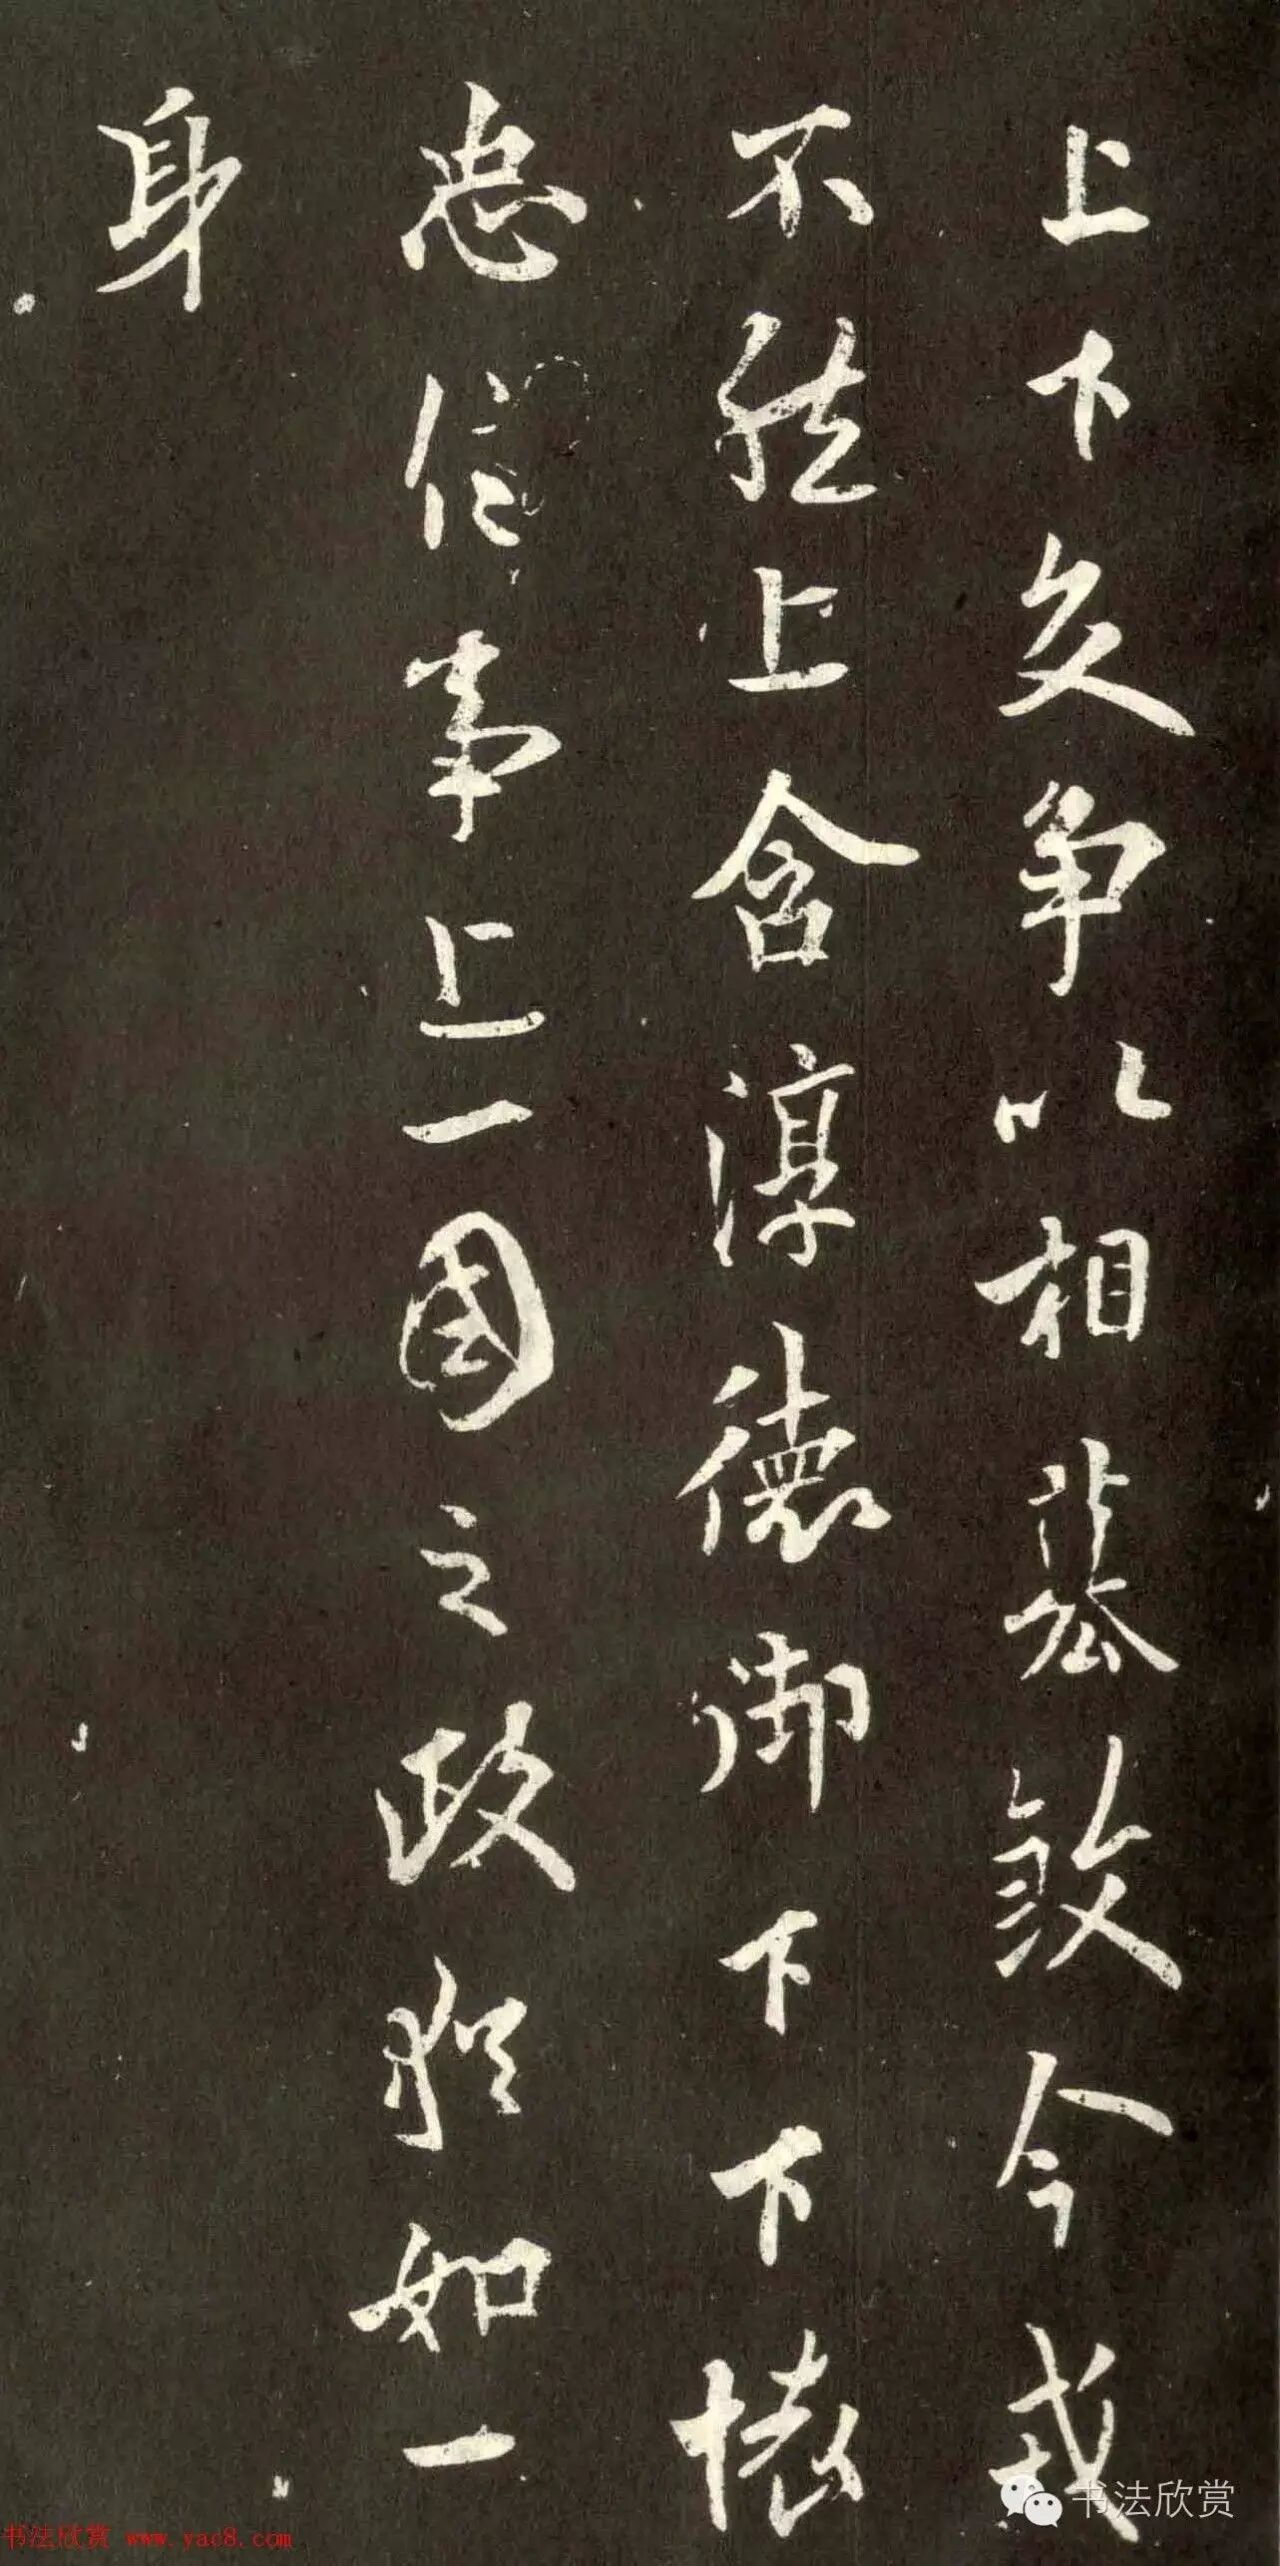 上下交争以相纂弑今戎
不然上含淳德御下下懷
忠信事上一國之政猶如一
身
书法欣赏
书法欣赏 www.yac8.com